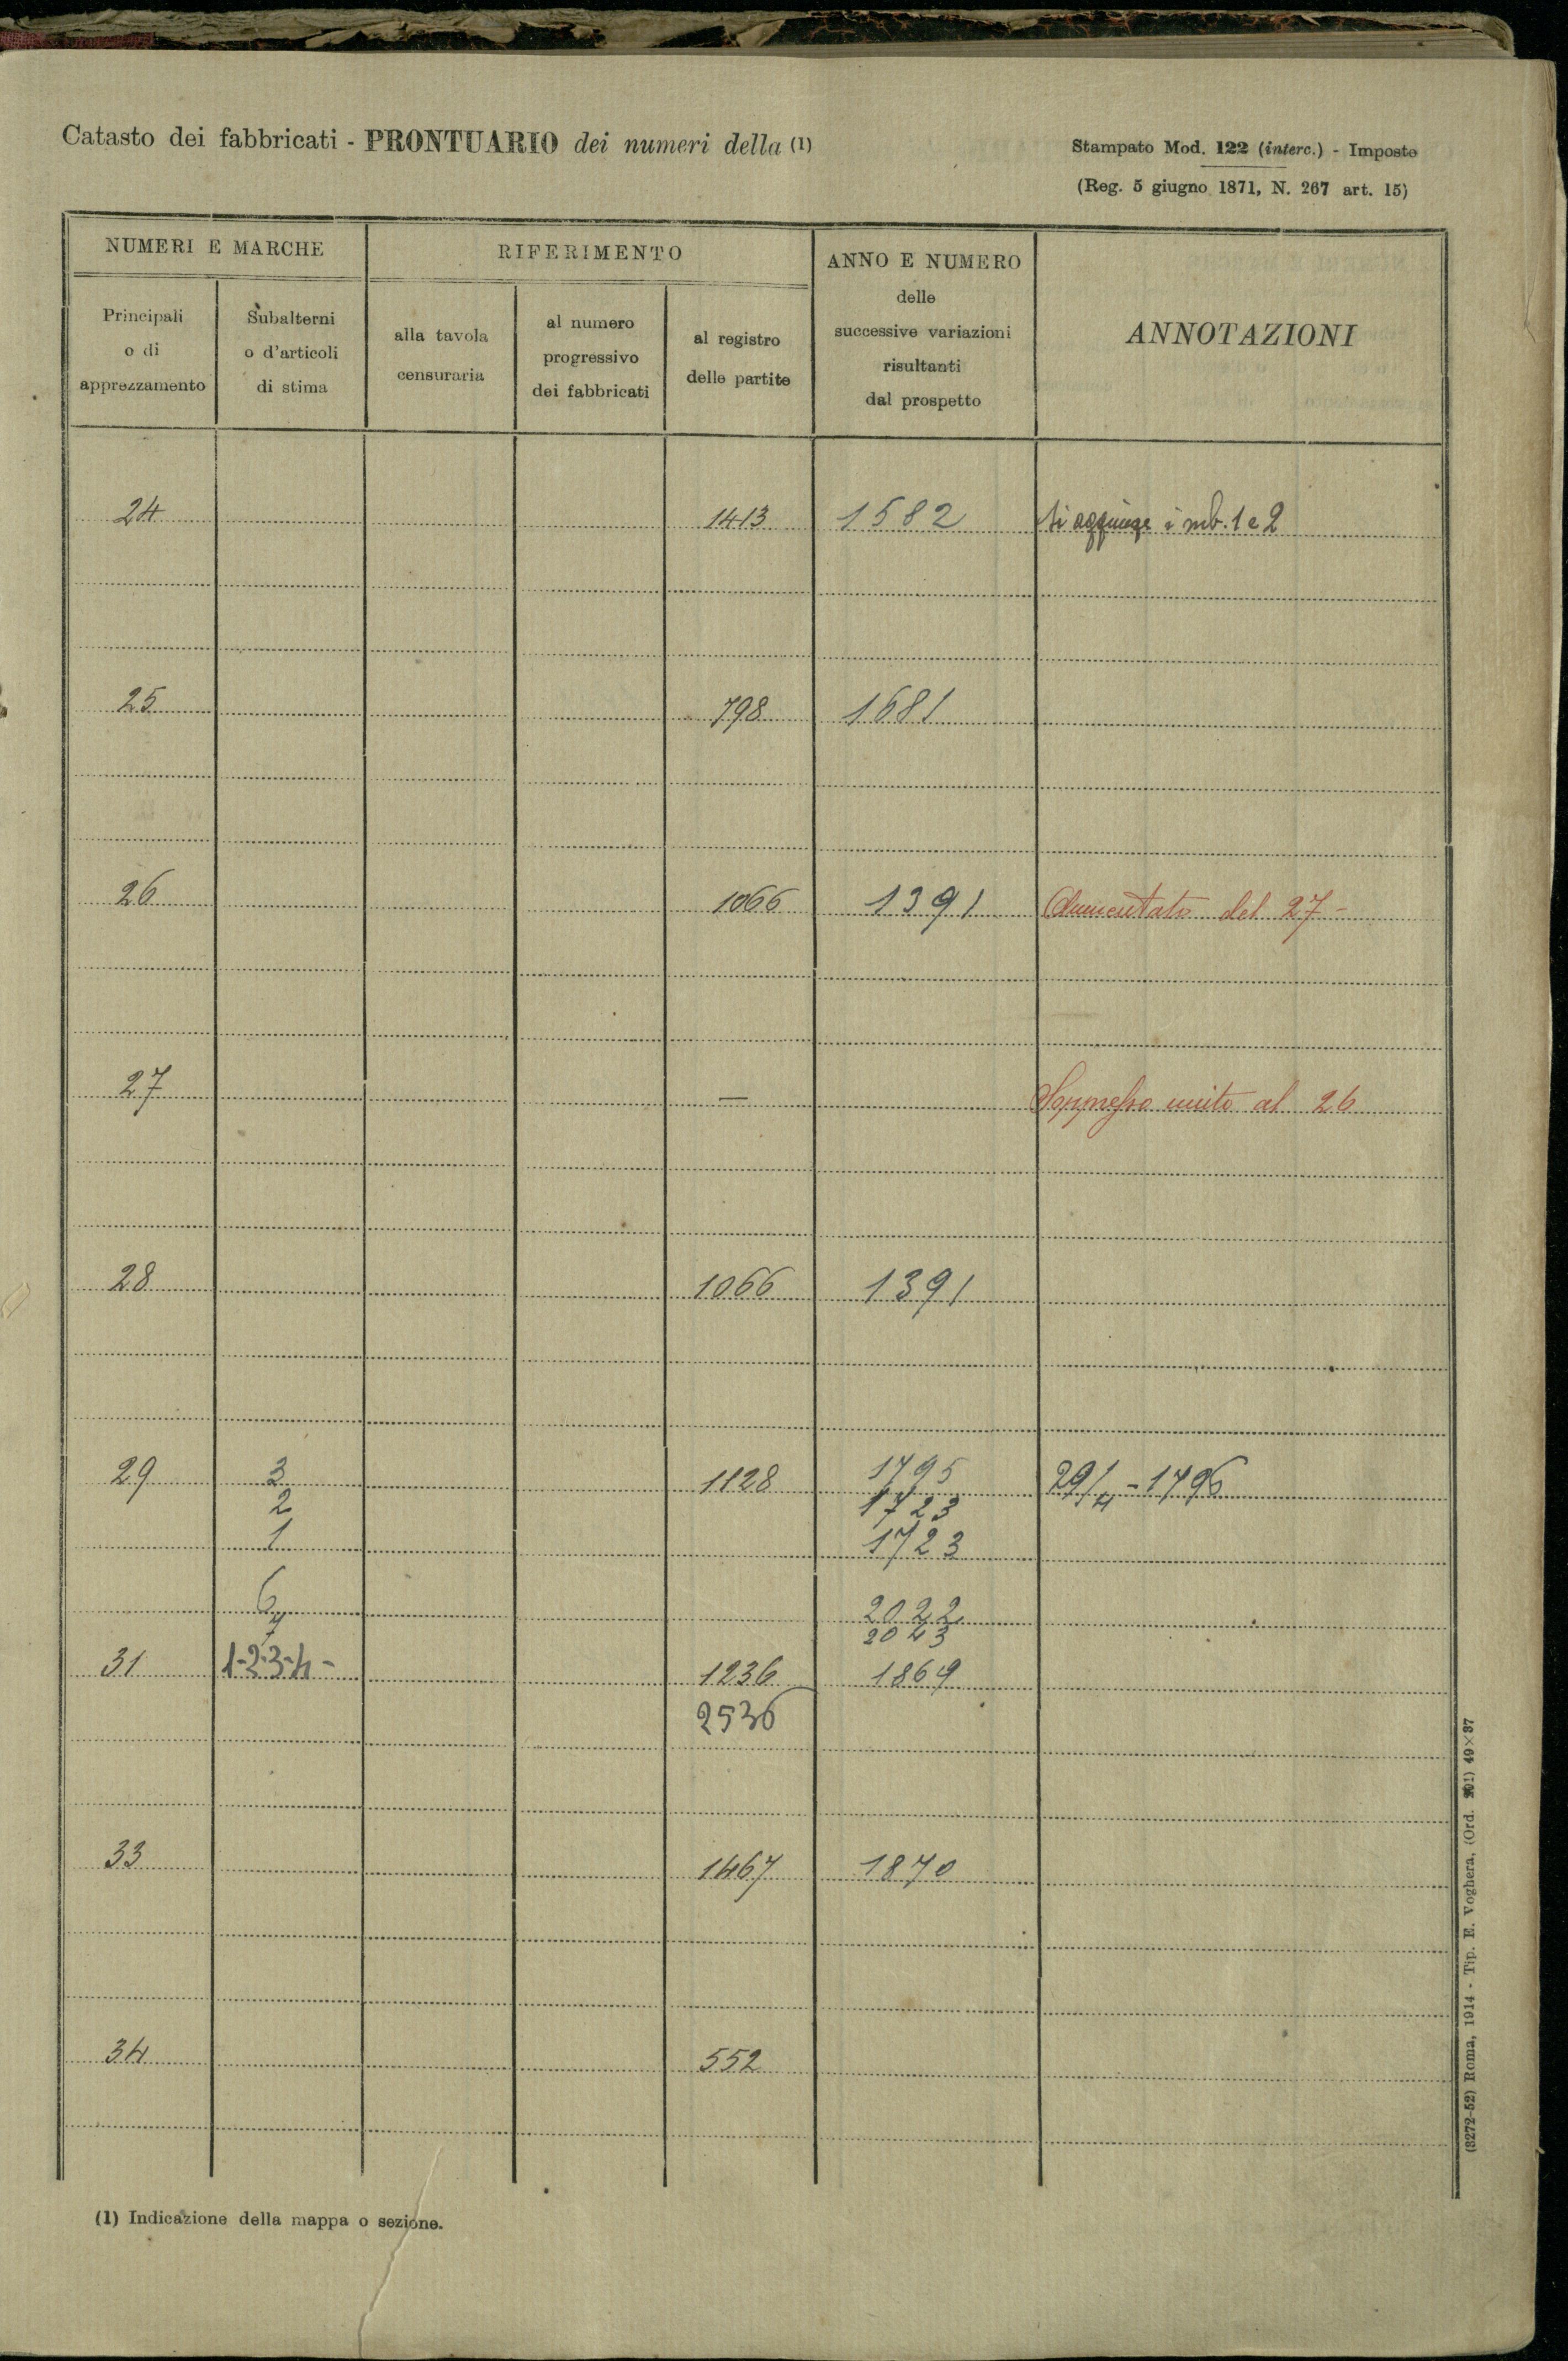 Catasto dei fabbricati - PRONTUARIO dei numeri della (1)
Stampato Mod. 122 (interc.) - Imposte
(Reg. 5 giugno 1871, N. 267 art. 15)
NUMERI E MARCHE
RIFERIMENTO
ANNO E NUMERO
delle
successive variazioni
risultanti
dal prospetto
ANNOTAZIONI
Principali
o di
apprezzamento
Subalterni
o d'articoli
di stima
alla tavola
censuraria
al numero
progressivo
dei fabbricati
al registro
delle partite
24 1413 1582 si aggiunge i sub. 1 e 2
25 798 1681
26 1066 1391 Aumentato del 27 -
27 — Soppresso unito al 26
28 1066 1391
29 3 1128 1795 29/4 - 1796
2 1723
1 1723
6 2022
7 2043
31 1-2-3-4- 1236 1869
2536
33 1467 1870
34 552
(1) Indicazione della mappa o sezione.
(3272-52) Roma, 1914 - Tip. E. Voghera. (Ord. 201) 49×37